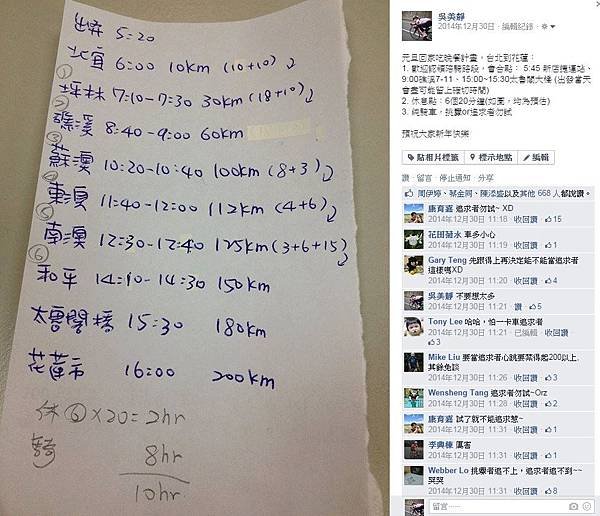 出門 5:20
北宜 6:00 10km (10+10)
① 坪林 7:10-7:30 30km (18+10)
② 礁溪 8:40-9:00 60km
③ 蘇澳 10:20-10:40 100km (8+3)
④ 東澳 11:40-12:00 112km (4+6)
⑤ 南澳 12:30-12:40 125km (3+6+15)
⑥ 和平 14:10-14:30 150km
太魯閣橋 15:30 180km
花蓮市 16:00 200km
休⑥×20=2hr
騎 8hr
10hr
吳美靜
2014年12月30日 · 編輯紀錄 ·
元旦回家吃晚餐計畫，台北到花蓮：
1. 歡迎認領陪騎路段，會合點： 5:45 新店捷運站、
9:00礁溪7-11、15:00~15:30太魯閣大橋 (出發當天
會盡可能留上確切時間)
2. 休息點：6個20分鐘(如圖，均為預估)
3. 純騎車，挑釁or追求者勿試
預祝大家新年快樂
為相片標籤 標示地點 編輯
讚 · 留言 · 停止通知 · 分享
周伊婷、蔡金同、陳添盛以及其他 668 人都說讚。
康育嘉 追求者勿試~ XD
2014年12月30日 11:18 · 收回讚 · 15
花田荷水 車多小心
2014年12月30日 11:19 · 收回讚 · 1
Gary Teng 先跟得上再決定能不能當追求者
這樣嗎XD
2014年12月30日 11:20 · 收回讚 · 4
吳美靜 不要想太多
2014年12月30日 11:21 · 讚 · 5
Tony Lee 哈哈，怕一卡車追求者
2014年12月30日 11:21 · 已編輯 · 收回讚 ·
3
Mike Liu 要當追求者心跳要禁得起200以上.
其餘免談
2014年12月30日 11:26 · 收回讚 · 3
Wensheng Tang 追求者勿試~Orz
2014年12月30日 11:28 · 收回讚 · 2
康育嘉 試了就不能追求惹~
2014年12月30日 11:31 · 收回讚 · 6
李興棟 厲害
2014年12月30日 11:31 · 收回讚 · 1
Webber Lo 挑釁者追不上，追求者追不到~~
哭哭
2014年12月30日 11:31 · 收回讚 · 8
留言......